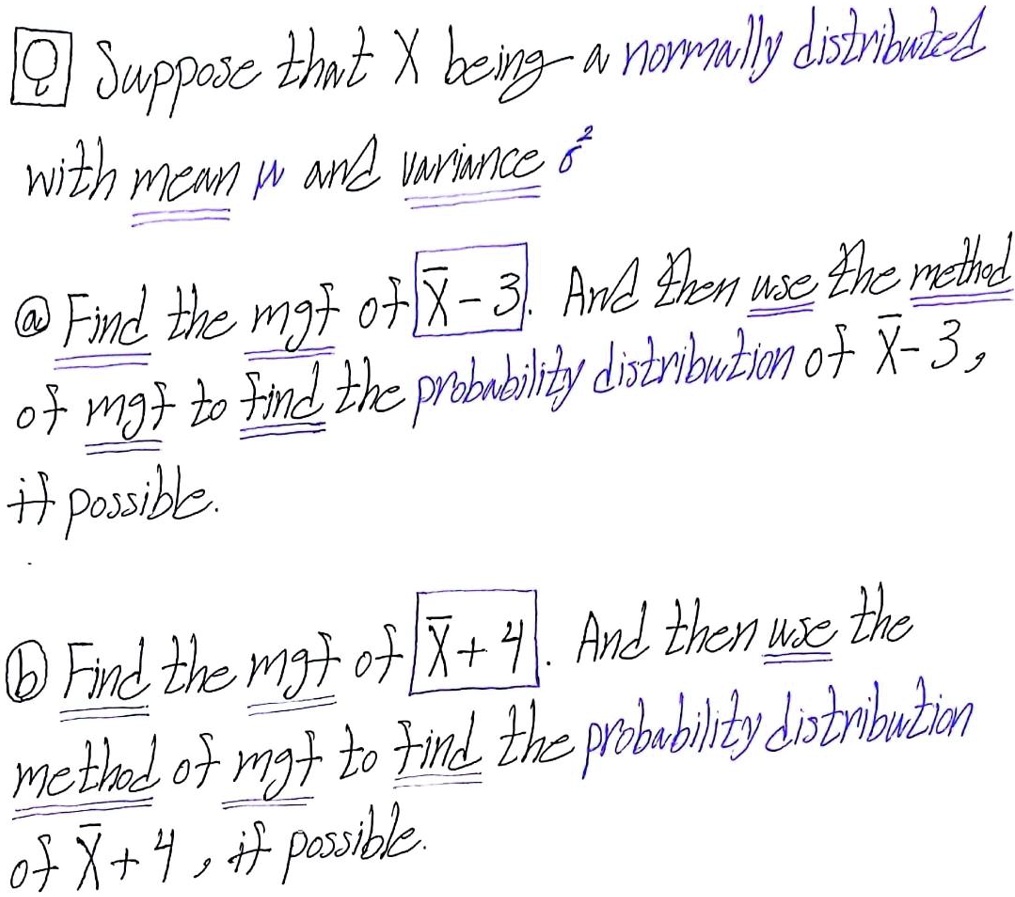 Q Suppose that X being a normally distributed
with mean μ and variance σ²
ⓐ Find the mgf of X̄ - 3. And then use the method
of mgf to find the probability distribution of X̄ - 3,
if possible.
ⓑ Find the mgf of X̄ + 4. And then use the
method of mgf to find the probability distribution
of X̄ + 4, if possible.